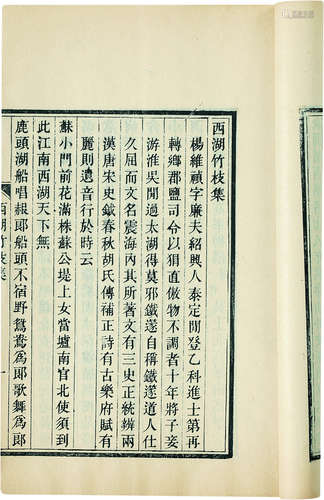 西湖竹枝集
楊維禎字廉夫紹興人泰定間登乙科進士第再
轉鄉郡鹽司令以狷直傲物不調者十年將子妾
游淮吳間過太湖得莫邪鐵遂自稱鐵遂道人仕
久屈而文名震海內其所著文有三史正統辨兩
漢唐宋史鉞春秋胡氏傳補正詩有古樂府賦有
麗則遺音行於時云
蘇小門前花滿株蘇公堤上女當壚南官北使須到
此江南西湖天下無
鹿頭湖船唱赧郎船頭不宿野鴛鴦為郎歌舞為郎
西湖竹枝集
一